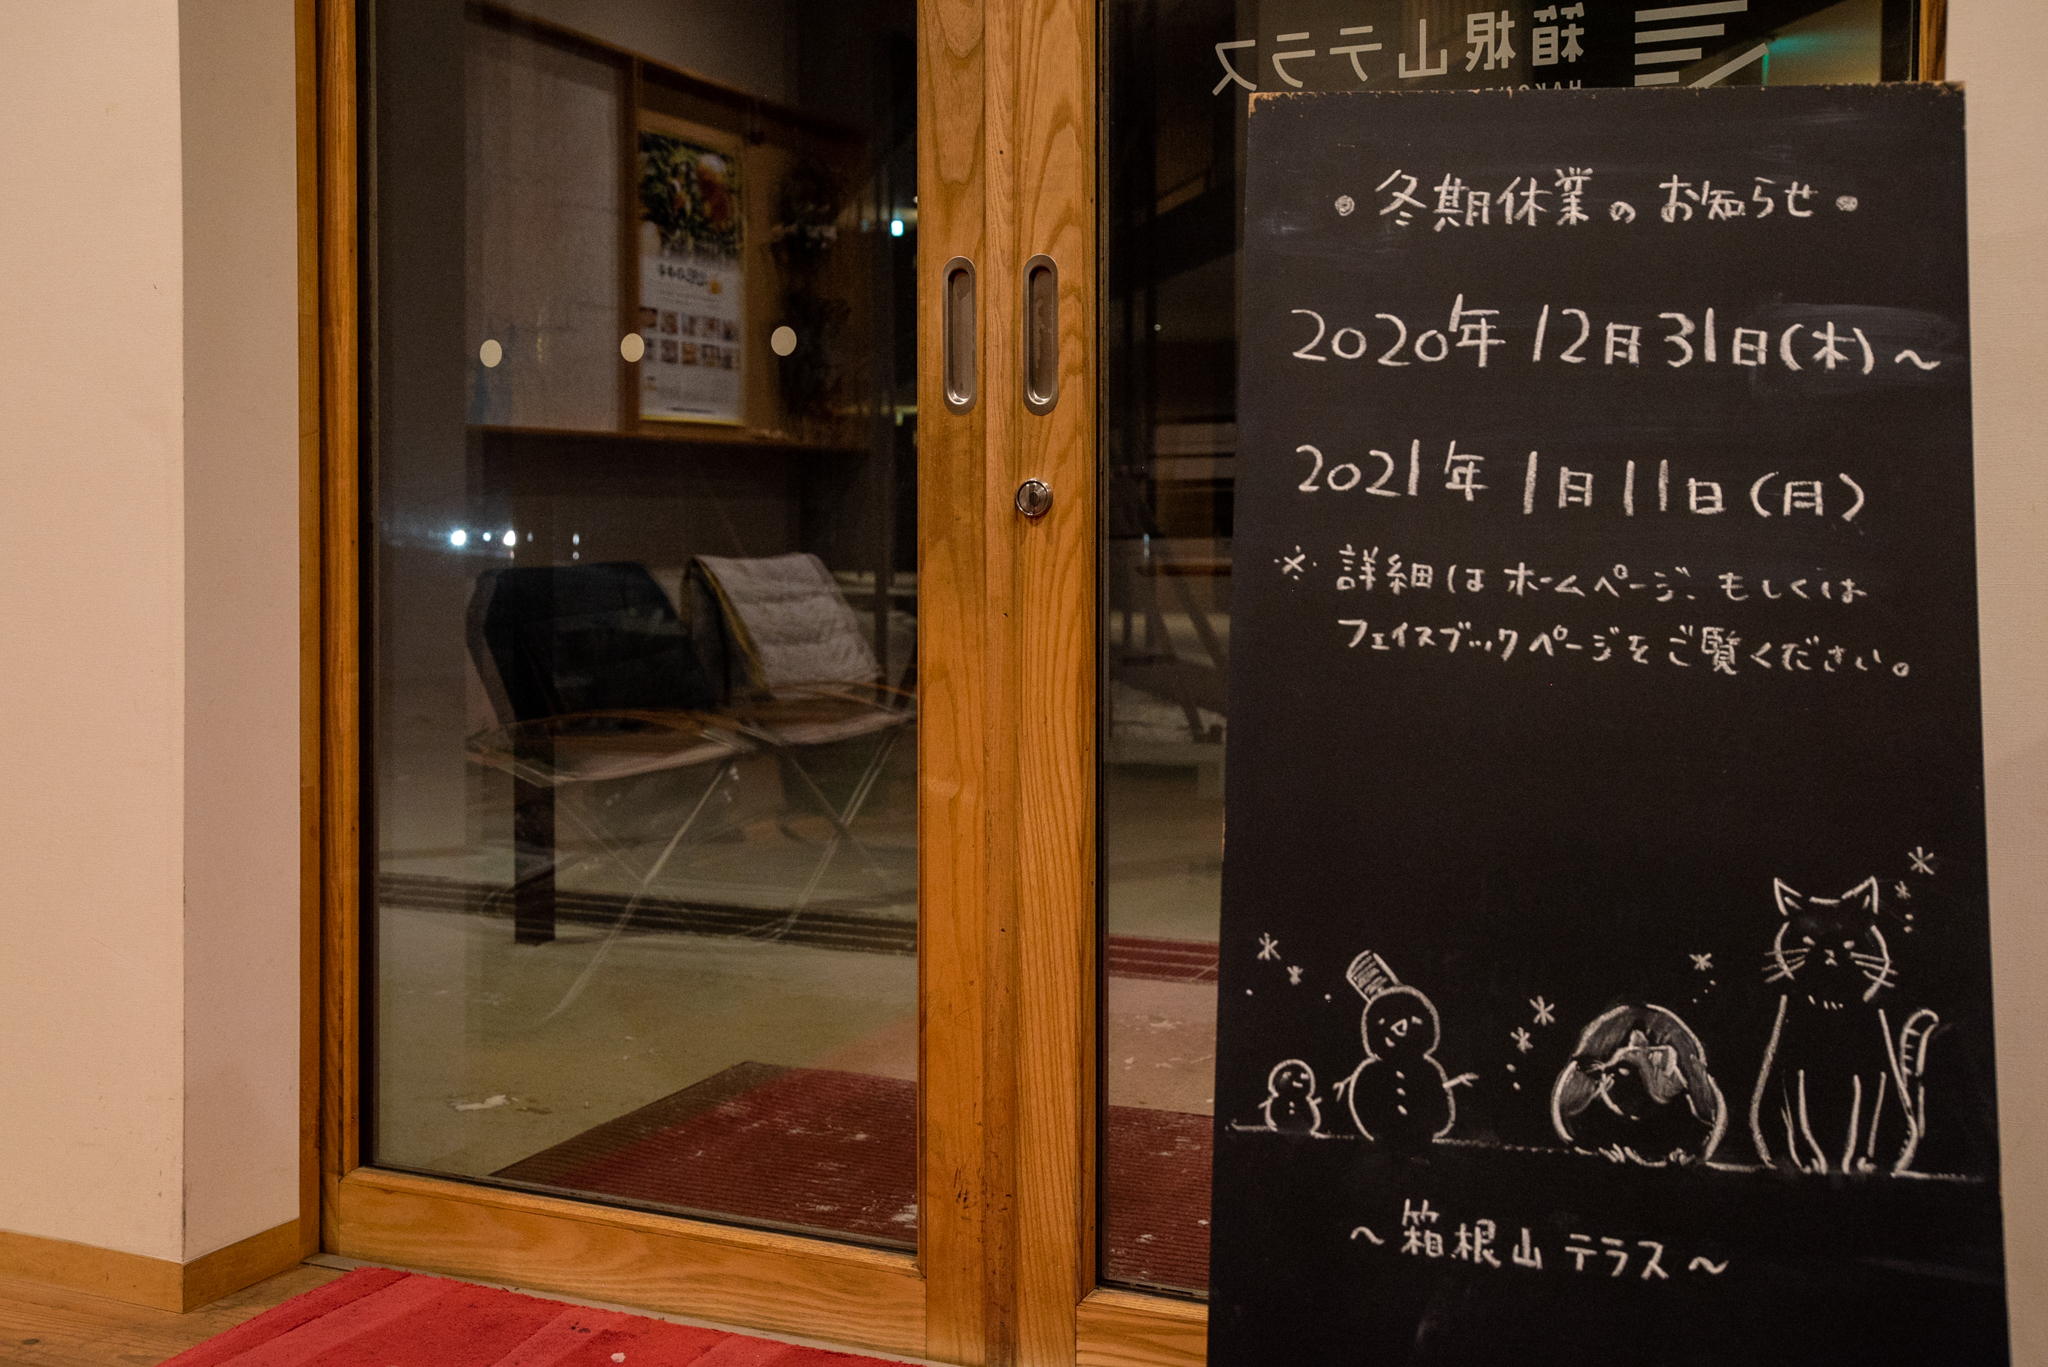 箱根山テラス
・冬期休業のお知らせ・
2020年12月31日(木)～
2021年1月11日(月)
※詳細はホームページ、もしくは
フェイスブックページをご覧ください。
～箱根山テラス～